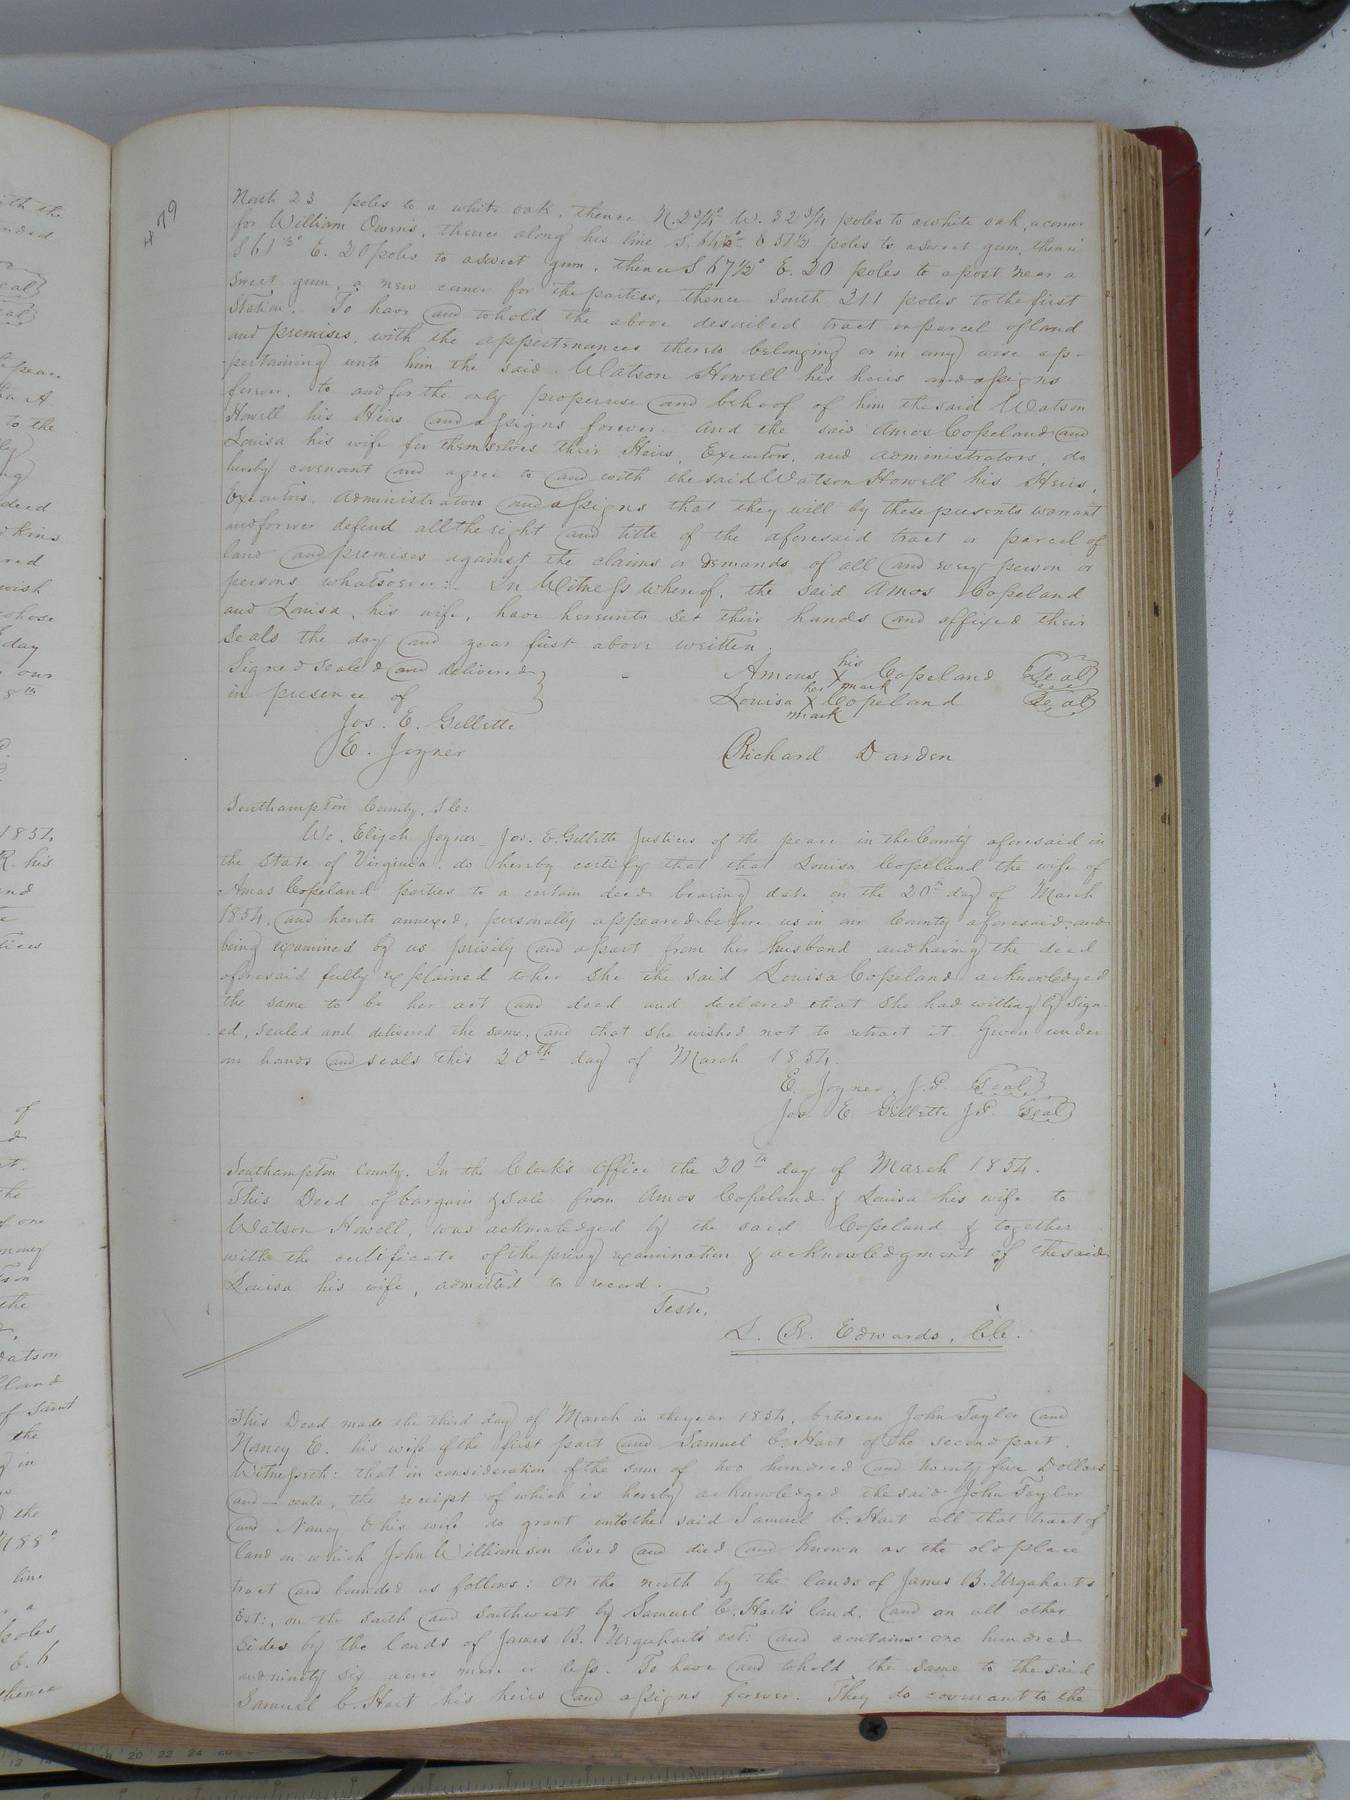 479
North 23 poles to a white oak, thence N. 2 3/4° W. 32 3/4 poles to a white oak, a corner
for William Owens, thence along his line S. 64½° E 57½ poles to a sweet gum, thence
S 61½° E. 20 poles to a sweet gum, thence S 67½° E. 20 poles to a post near a
sweet gum, a new corner for the parties, thence South 211 poles to the first
Station. To have and to hold the above described tract or parcel of land
and premises, with the appertenances thereto belonging or in any wise ap-
pertaining unto him the said Watson Howell his heirs and assigns
forever, to and for the only proper use and behoof of him the said Watson
Howell his Heirs and assigns forever. And the said Amos Copeland and
Louisa his wife for themselves their Heirs, Executors, and administrators, do
hereby covenant and agree to and with the said Watson Howell his Heirs,
Executors, administrators and assigns that they will by these presents warrant
and forever defend all the right and title of the aforesaid tract or parcel of
land and premises against the claims or demands of all and every person or
persons whatsoever. In Witness whereof, the said Amos Copeland
and Louisa, his wife, have hereunto set their hands and affixed their
seals the day and year first above written.
Signed sealed and delivered
in presence of
Jos. E. Gillette
E. Joyner
his
Amous X Copeland Seal
mark
her
Louisa X Copeland Seal
mark
Richard Darden
Southampton County, SC:
We, Elijah Joyner Jos. E. Gillette Justices of the peace in the County aforesaid in
the State of Virginia, do hereby certify that that Louisa Copeland the wife of
Amos Copeland parties to a certain deed bearing date on the 20th day of March
1854, and hereto annexed, personally appeared before us in our County aforesaid and
being examined by us privily and apart from her husband and having the deed
aforesaid fully explained to her she the said Louisa Copeland acknowledged
the same to be her act and deed and declared that she had willingly sign-
ed, sealed and delivered the same, and that she wished not to retract it. Given under
our hands and seals this 20th day of March 1854.
E. Joyner J.P. Seal
Jos E Gillette J.P. Seal
Southampton County. In the Clerk's Office the 20th day of March 1854.
This Deed of bargain & sale from Amos Copeland & Louisa his wife to
Watson Howell, was acknowledged by the said Copeland & together
with the certificate of the privy examination & acknowledgment of the said
Louisa his wife, admitted to record.
Teste,
L. R. Edwards, C.C.
This Deed made the third day of March in the year 1854, between John Taylor and
Nancy E. his wife of the first part and Samuel C. Hart of the second part.
Witnesseth: that in consideration of the sum of two hundred and twenty five Dollars
and — cents, the receipt of which is hereby acknowledged the said John Taylor
and Nancy E his wife do grant unto the said Samuel C. Hart all that tract of
land on which John Williamson lived and died and known as the old place
tract and bounded as follows: On the north by the lands of James B. Urquhart's
Est:, on the south and southwest by Samuel C. Hart's land, and on all other
sides by the lands of James B. Urquhart's est: and contains one hundred
and ninety six acres more or less. To have and to hold the same to the said
Samuel C. Hart his heirs and assigns forever. They do covenant to the